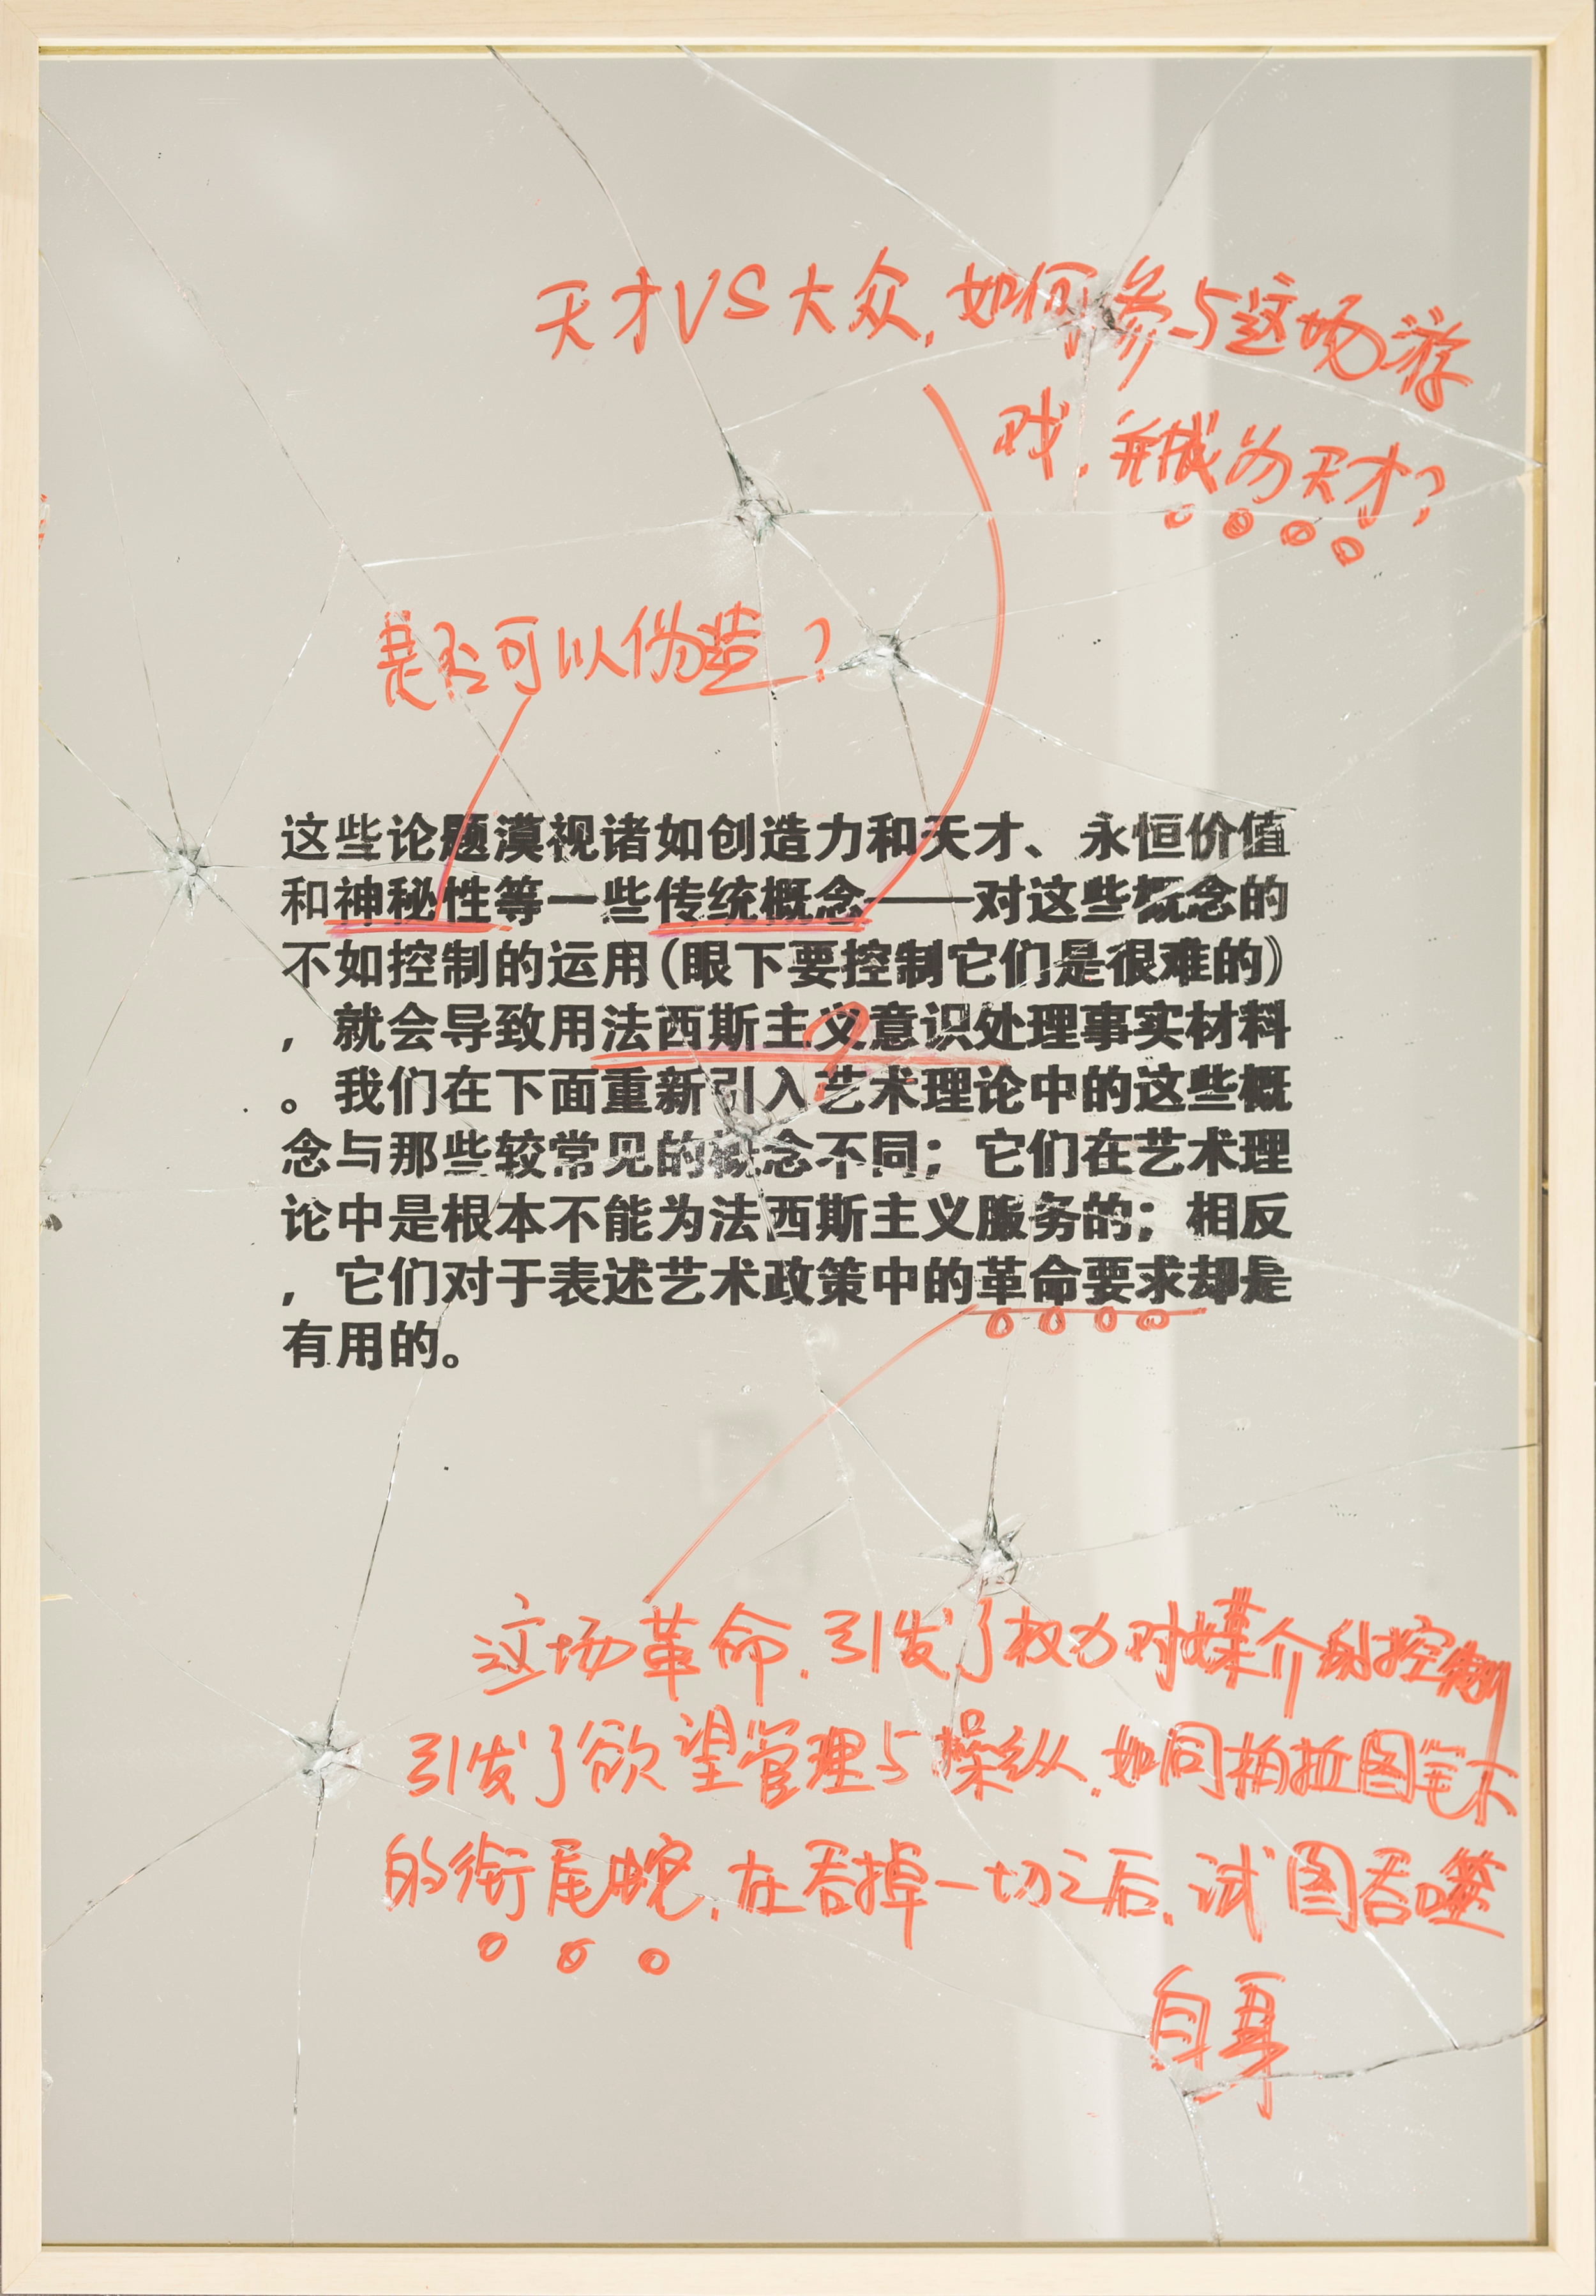 天才VS大众，如何参与这场游
戏，并成为天才？
是否可以伪造？
这些论题漠视诸如创造力和天才、永恒价值
和神秘性等一些传统概念——对这些概念的
不如控制的运用（眼下要控制它们是很难的）
，就会导致用法西斯主义意识处理事实材料
？
。我们在下面重新引入艺术理论中的这些概
念与那些较常见的概念不同；它们在艺术理
论中是根本不能为法西斯主义服务的；相反
，它们对于表述艺术政策中的革命要求却是
有用的。
这场革命，引发了权力对媒介的控制
引发了欲望管理与操纵，如同柏拉图笔下
的衔尾蛇，在吞掉一切之后，试图吞噬
自身